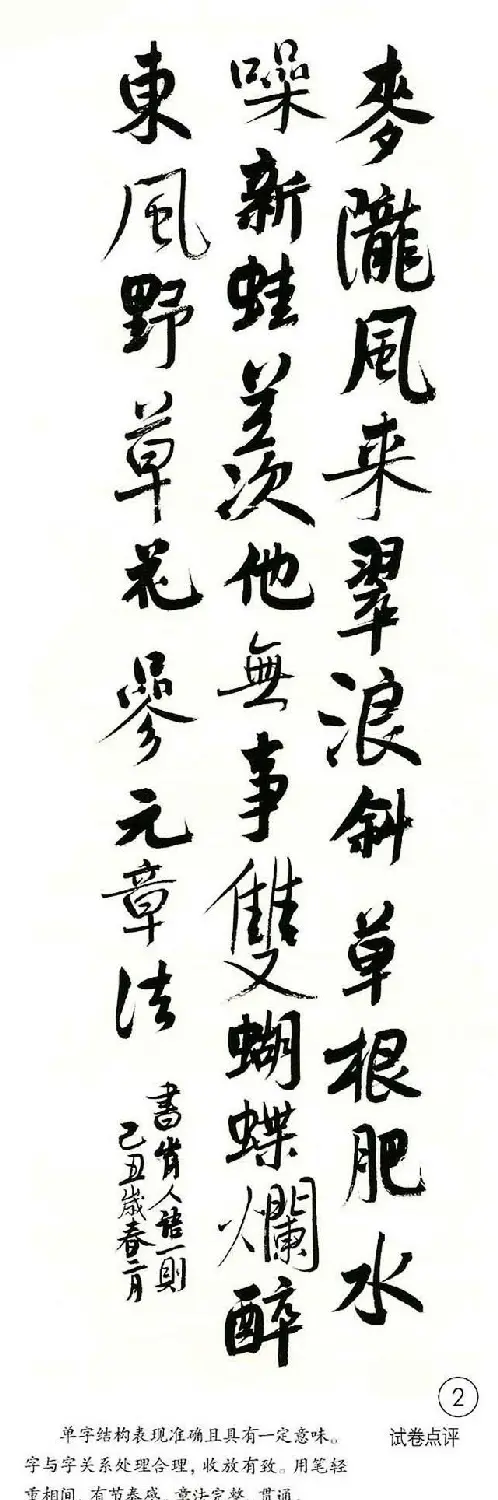 麥隴風来翠浪斜草根肥水
噪新蛙羨他無事雙蝴蝶爛醉
東風野草花 參元章法
書前人語一則
己丑歲春二月
2
试卷点评
单字结构表现准确且具有一定意味。
字与字关系处理合理，收放有致。用笔轻
重相间，有节奏感。章法完整、贯通。